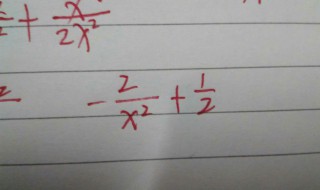 + x/2x²
- 2/x² + 1/2